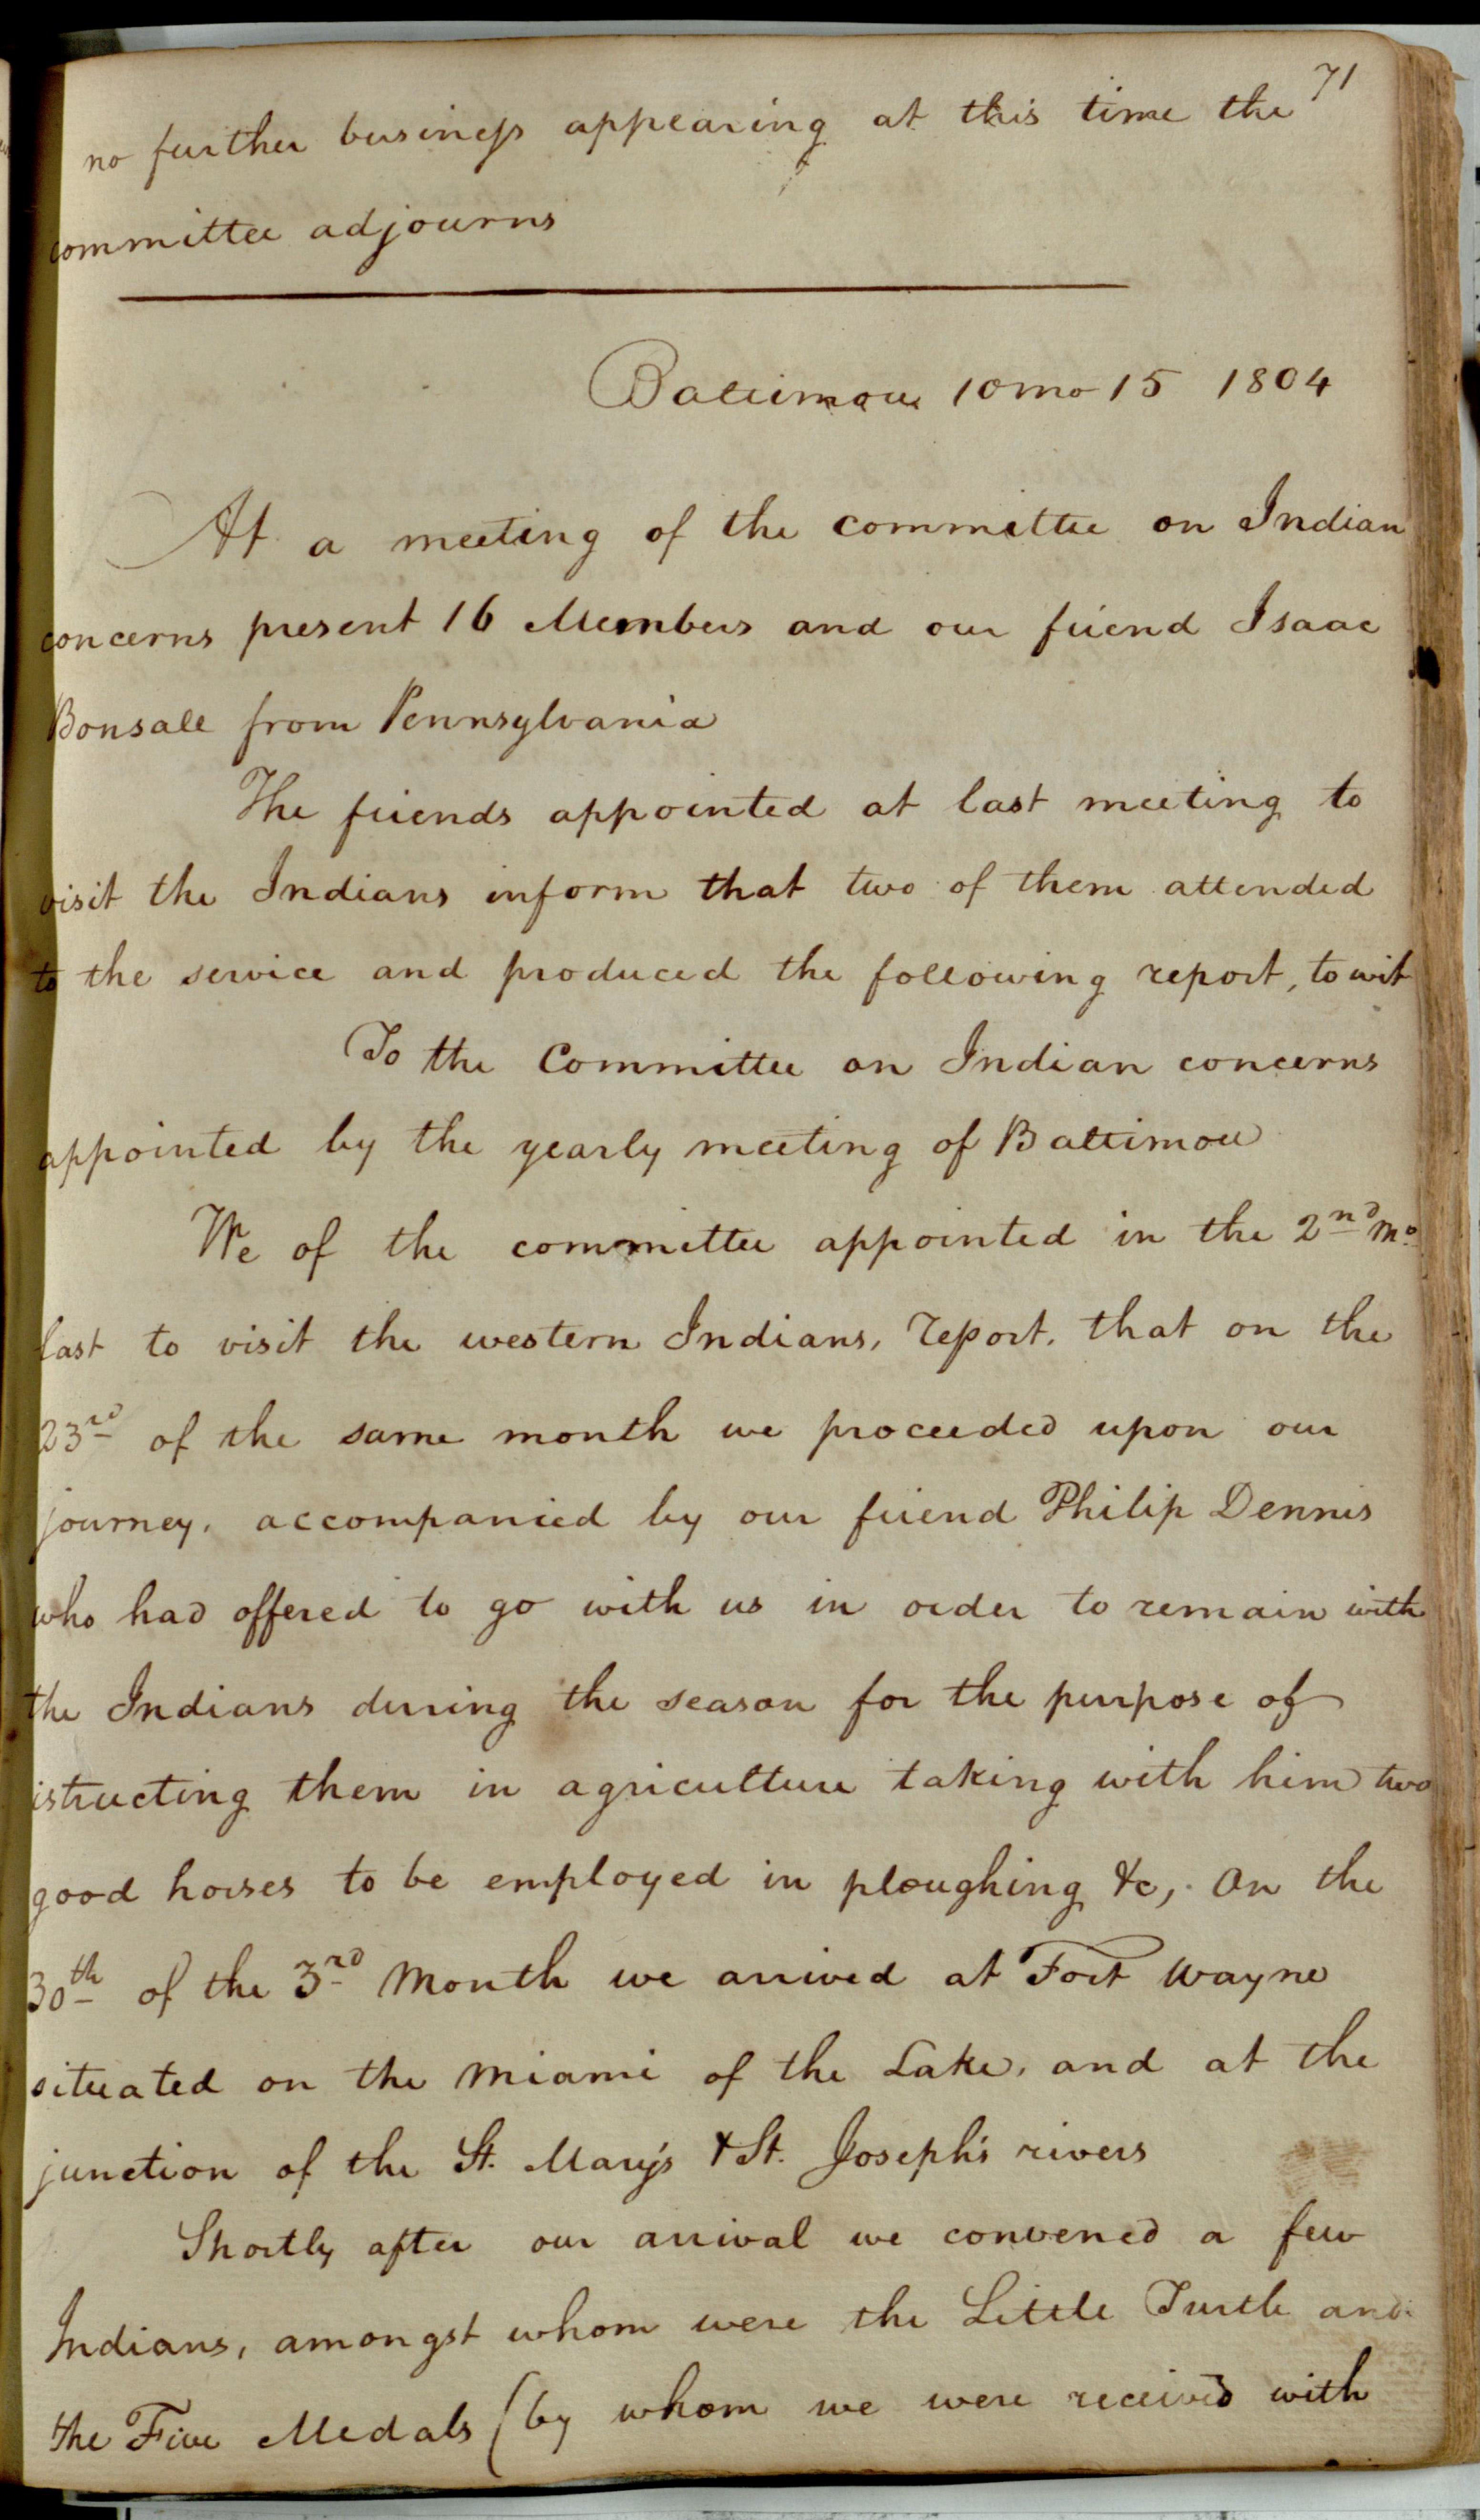 71
no further business appearing at this time the
committee adjourns
Baltimore 10 mo 15 1804
At a meeting of the committee on Indian
concerns present 16 Members and our friend Isaac
Bonsall from Pennsylvania
The friends appointed at last meeting to
visit the Indians inform that two of them attended
to the service and produced the following report, to wit
To the Committee on Indian concerns
appointed by the yearly meeting of Baltimore
We of the committee appointed in the 2nd mo.
last to visit the western Indians, report, that on the
23rd of the same month we proceeded upon our
journey, accompanied by our friend Philip Dennis
who had offered to go with us in order to remain with
the Indians during the season for the purpose of
istructing them in agriculture taking with him two
good horses to be employed in ploughing &c, On the
30th of the 3rd Month we arrived at Fort Wayne
situated on the Miami of the Lake, and at the
junction of the St. Mary's & St. Joseph's rivers
Shortly after our arrival we convened a few
Indians, amongst whom were the Little Turtle and
the Five Medals (by whom we were received with